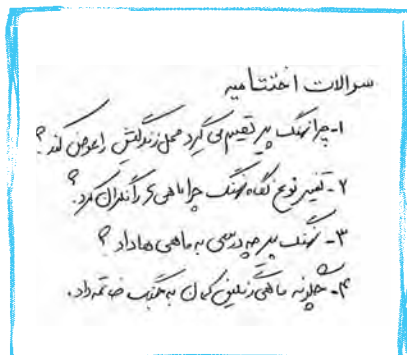 سوالات اختتامیه
۱- چرا نهنگ پیر تصمیم می گیرد محل زندگیش را عوض کند؟
۲- تغییر نوع نگاه نهنگ چرا ماهی ها را نگران کرد؟
۳- نهنگ پیر چه درسی به ماهی ها داد؟
۴- چگونه ماهی رنگین کمان به جنگ خاتمه داد.